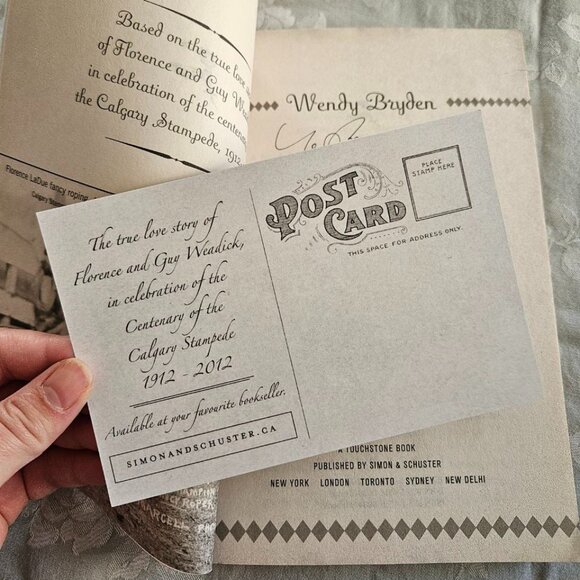 Based on the true love
of Florence and Guy We
in celebration of the centen
the Calgary Stampede, 1912
Florence LaDue fancy roping
Calgary
Wendy Bryden
POST CARD
PLACE
STAMP HERE
THIS SPACE FOR ADDRESS ONLY
The true love story of
Florence and Guy Weadick,
in celebration of the
Centenary of the
Calgary Stampede
1912 - 2012
Available at your favourite bookseller.
SIMONANDSCHUSTER.CA
A TOUCHSTONE BOOK
PUBLISHED BY SIMON & SCHUSTER
NEW YORK LONDON TORONTO SYDNEY NEW DELHI